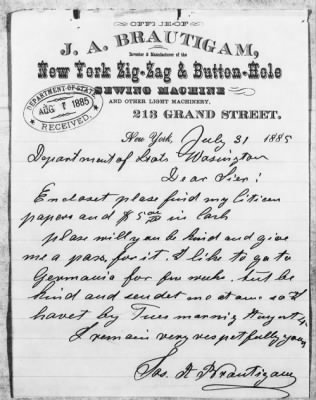 OFFICE OF
J. A. BRAUTIGAM,
Inventor & Manufacturer of the
New York Zig-Zag & Button-Hole
SEWING MACHINE
AND OTHER LIGHT MACHINERY.
213 GRAND STREET.
DEPARTMENT OF STATE
AUG 1 1885
RECEIVED.
New York, July 31 1885
Department of State Wasington
Dear Sier!
Encloset plase find my Citicen
papers and $ 5 00/00 in Cash
plase will you be kind and give
me a pass, for it. I like to go to
Germania for few weeks. but be
kind and sendet me at once so I
havet by Tues morning August 4.
I remain very respetfully yours
Jos. A Brautigam